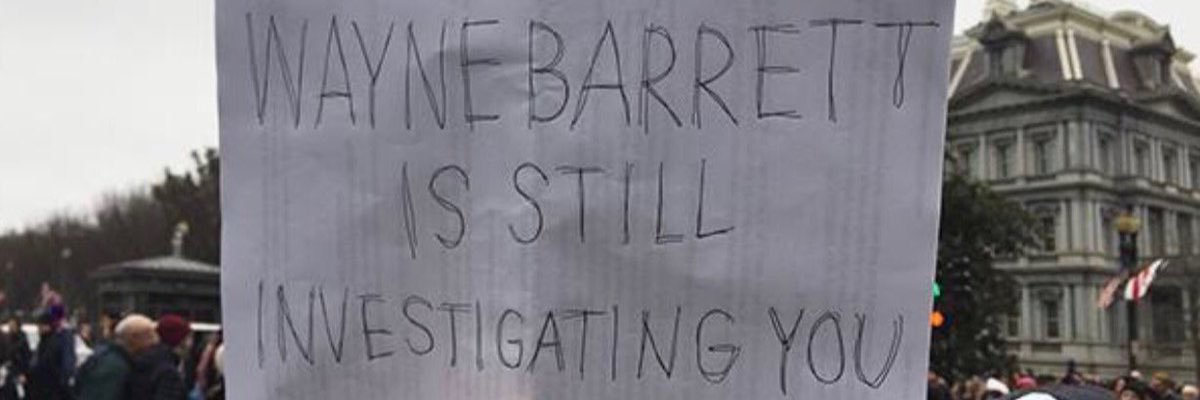 WAYNE BARRETT
IS STILL
INVESTIGATING YOU